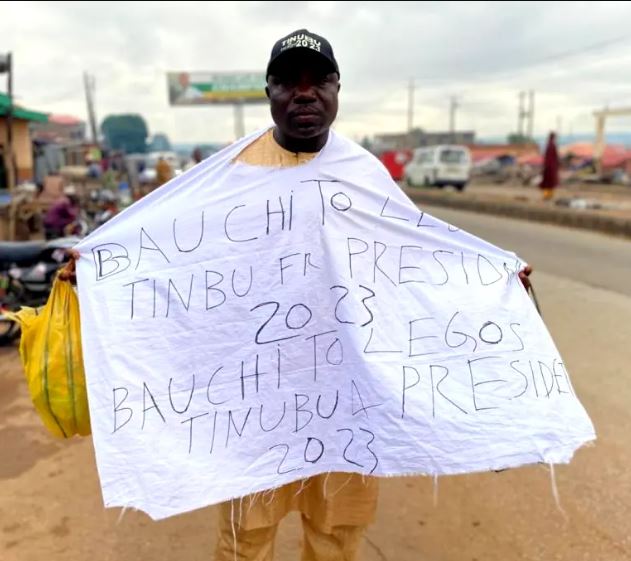 TINUBU
2023
BAUCHI TO
TINBU FR PRESIDN
2023
BAUCHI TO LEGOS
TINUBU 4 PRESIDET
2023